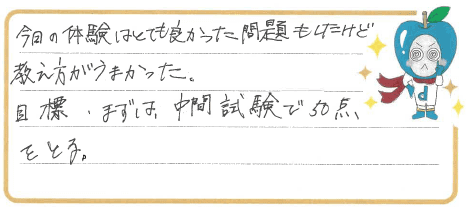 今日の体験はとても良かった問題もしたけど
教え方がうまかった。
目標、まずは、中間試験で50点、
をとる。
d